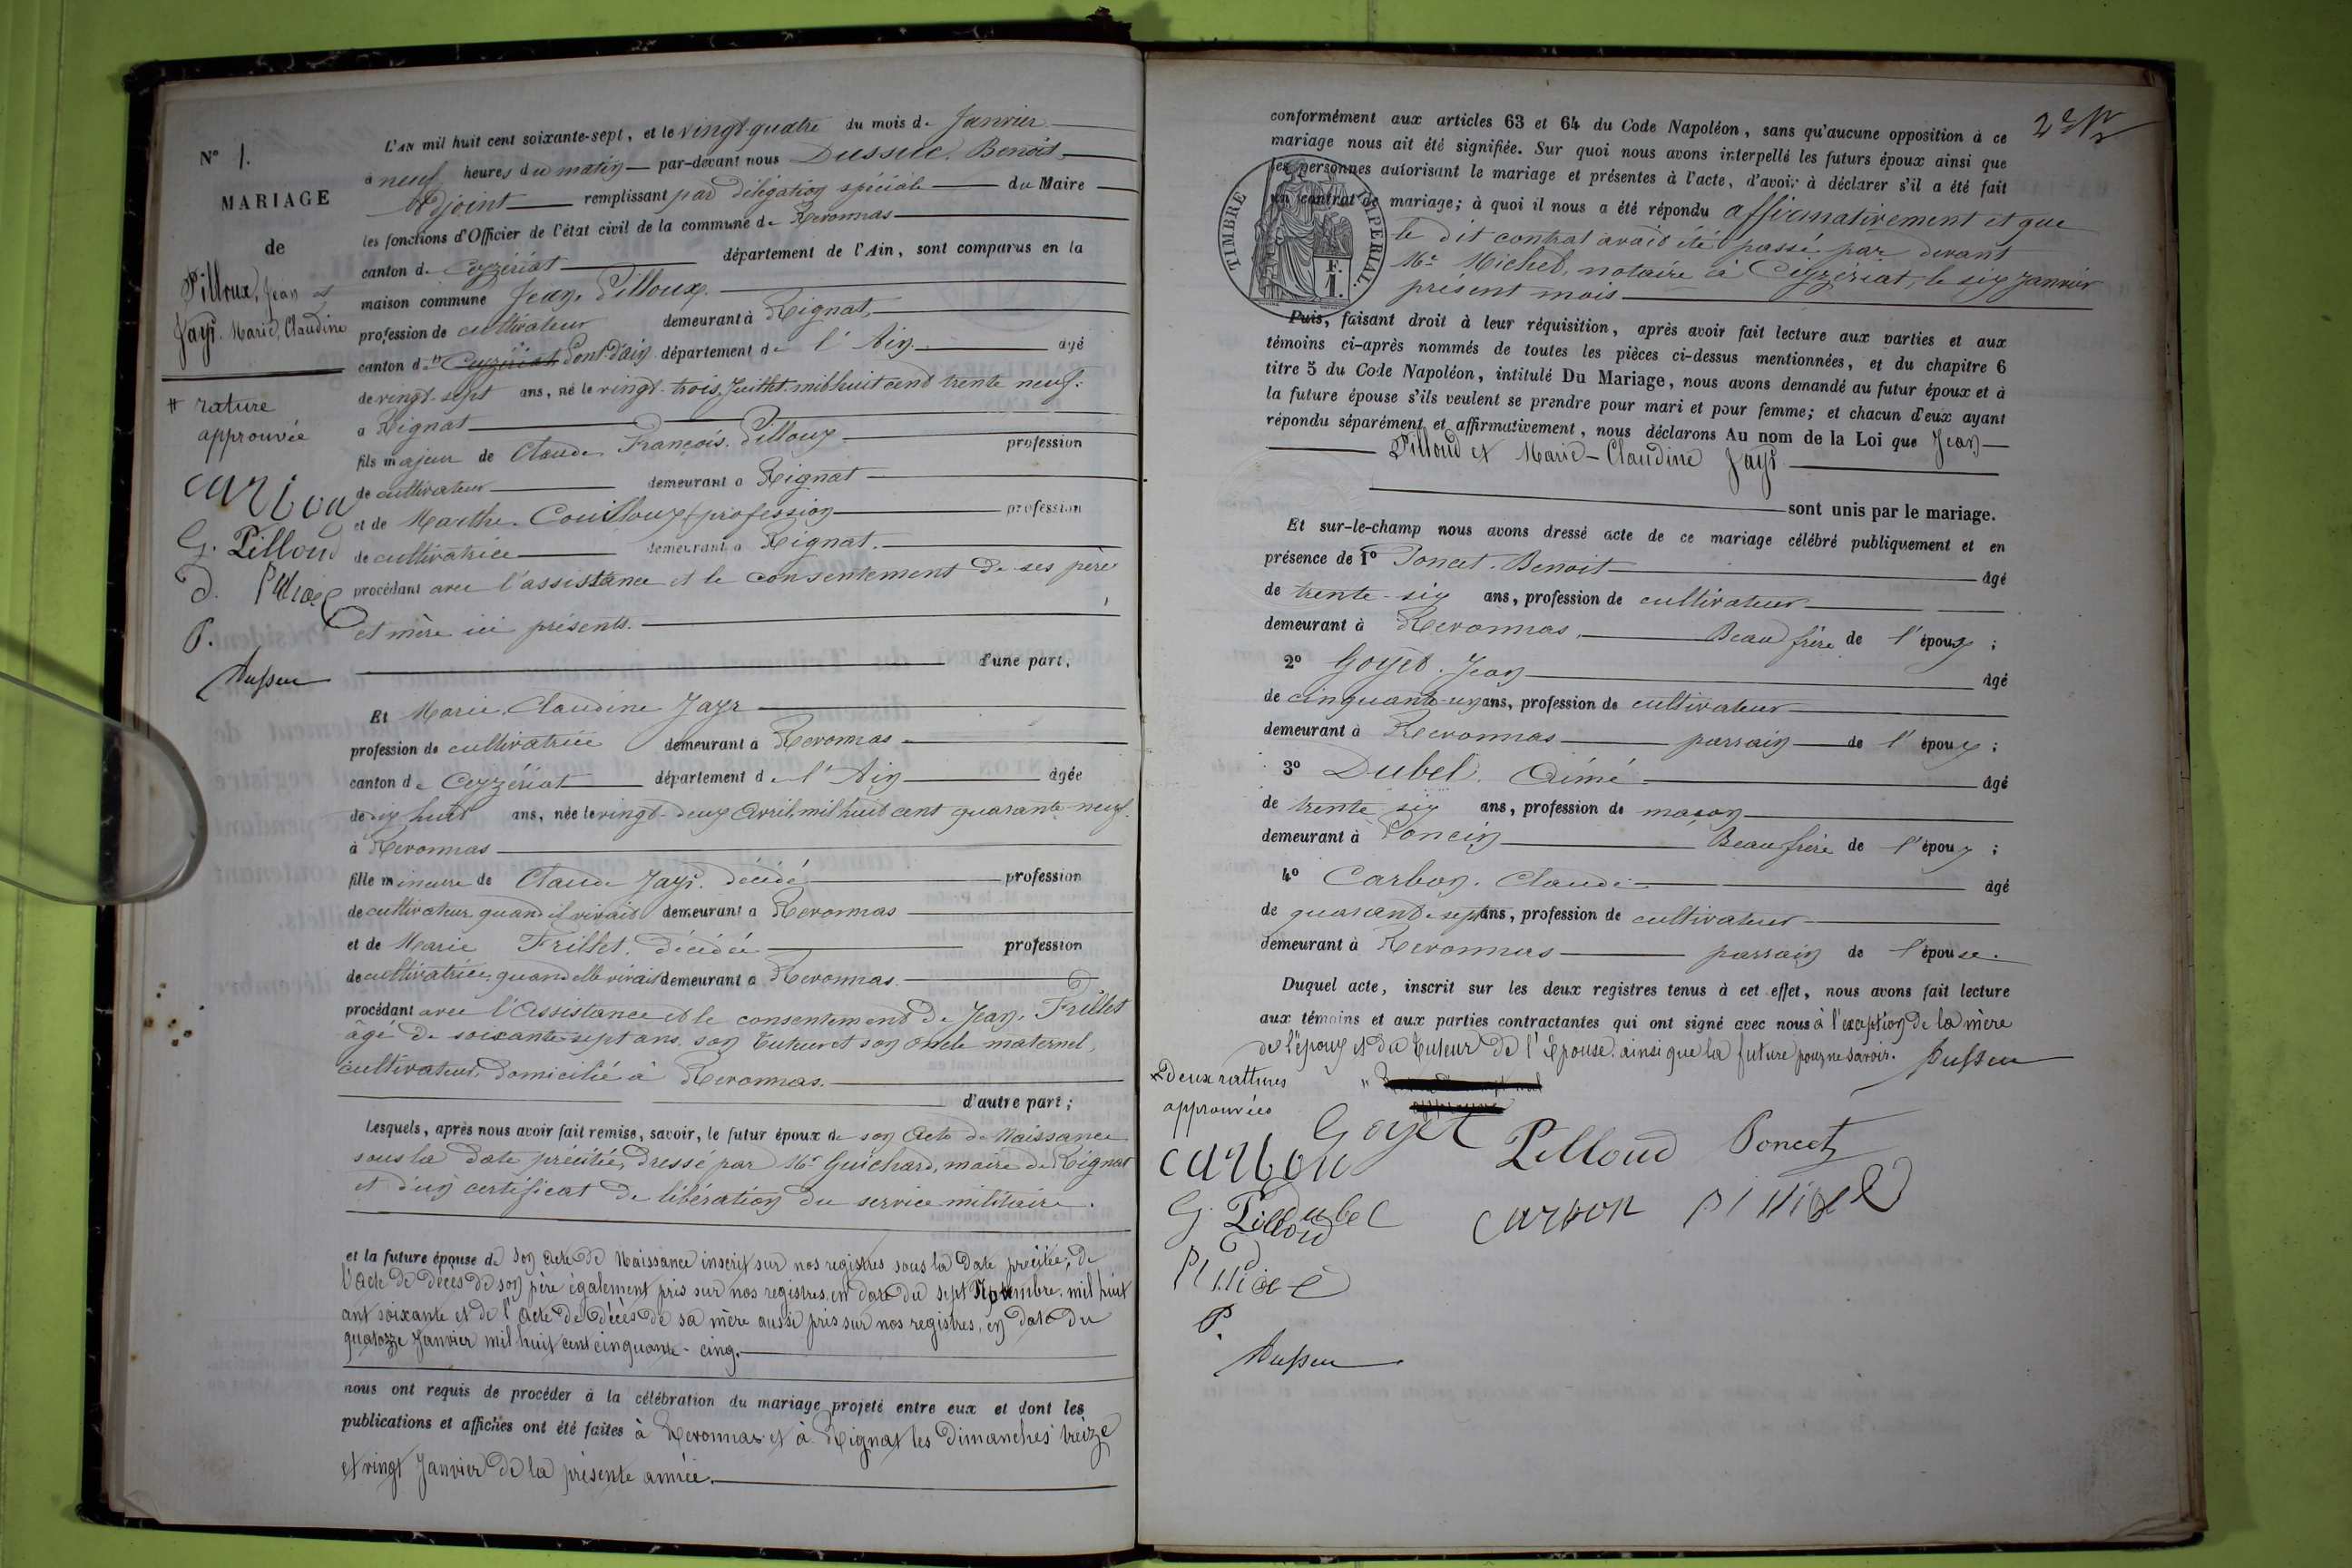 N° 1.
MARIAGE
de
Pilloux, Jean et
Jayr. Marie, Claudine
# rature
approuvée
carbon
G. Pilloud
P.
Dussuc
L'AN mil huit cent soixante-sept, et le vingt-quatre du mois de Janvier
à neuf heures du matin par-devant nous Dussuc, Benoit
Adjoint remplissant par délégation spéciale du Maire
les fonctions d'Officier de l'état civil de la commune de Revonnas
canton de Ceyzériat département de l'Ain, sont comparus en la
maison commune Jean, Pilloux.
profession de cultivateur demeurant à Rignat,
canton de # Ceyzériat Pont-d'ain département de l'Ain âgé
de vingt-sept ans, né le vingt-trois Juillet mil huit cent trente neuf.
à Rignat
fils majeur de Claude François. Pilloux profession
de cultivateur demeurant à Rignat
et de Marthe. Couilloux profession profession
de cultivatrice demeurant à Rignat.
procédant avec l'assistance et le consentement de ses père
et mère ici présents.
d'une part,
Et Marie. Claudine Jayr
profession de cultivatrice demeurant à Revonnas
canton de Ceyzériat département de l'Ain âgée
de dix huit ans, née le vingt-deux Avril, mil huit cent quarante-neuf.
à Revonnas
fille mineure de Claude Jayr. décédé profession
de cultivateur quand il vivait demeurant à Revonnas
et de Marie Frillet. décédée profession
de cultivatrice, quand elle vivait demeurant à Revonnas.
procédant avec l'Assistance et le consentement de Jean, Frillet
âgé de soixante-sept ans, son tuteur et son oncle maternel,
cultivateur, domicilié à Revonnas.
d'autre part;
Lesquels, après nous avoir fait remise, savoir, le futur époux de son Acte de Naissance
sous la date précitée, dressé par Mr Guichard, maire de Rignat
et d'un certificat de libération du service militaire.
et la future épouse de son Acte de Naissance inscrit sur nos registres sous la date précitée; de
l'acte de décès de son père également pris sur nos registres, en date du sept Novembre, mil huit
cent soixante et de l'Acte de décès de sa mère aussi pris sur nos registres, en date du
quatorze Janvier mil huit cent cinquante-cinq.
nous ont requis de procéder à la célébration du mariage projeté entre eux et dont les
publications et affiches ont été faites à Revonnas et à Rignat les dimanches treize
et vingt Janvier de la présente année.
conformément aux articles 63 et 64 du Code Napoléon, sans qu'aucune opposition à ce
mariage nous ait été signifiée. Sur quoi nous avons interpellé les futurs époux ainsi que
les personnes autorisant le mariage et présentes à l'acte, d'avoir à déclarer s'il a été fait
un contrat de mariage; à quoi il nous a été répondu affirmativement et que
le dit contrat avait été passé par devant
Mr Michel, notaire à Ceyzériat, le six janvier
présent mois
TIMBRE IMPERIAL.
F.
1.
Puis, faisant droit à leur réquisition, après avoir fait lecture aux parties et aux
témoins ci-après nommés de toutes les pièces ci-dessus mentionnées, et du chapitre 6
titre 5 du Code Napoléon, intitulé Du Mariage, nous avons demandé au futur époux et à
la future épouse s'ils veulent se prendre pour mari et pour femme; et chacun d'eux ayant
répondu séparément et affirmativement, nous déclarons Au nom de la Loi que Jean
Pilloud et Marie-Claudine Jayr
sont unis par le mariage.
Et sur-le-champ nous avons dressé acte de ce mariage célébré publiquement et en
présence de 1° Poncet. Benoit âgé
de trente-six ans, profession de cultivateur
demeurant à Revonnas, Beau frère de l'époux;
2° Goyet. Jean âgé
de cinquante-un ans, profession de cultivateur
demeurant à Revonnas parrain de l'époux;
3° Dubel. Aimé âgé
de trente six ans, profession de maçon
demeurant à Poncin Beau frère de l'époux;
4° Carbon. Claude âgé
de quarante-sept ans, profession de cultivateur
demeurant à Revonnas parrain de l'épouse.
Duquel acte, inscrit sur les deux registres tenus à cet effet, nous avons fait lecture
aux témoins et aux parties contractantes qui ont signé avec nous à l'exception de la mère
de l'époux et du tuteur de l'épouse ainsi que la future pour ne savoir. Dussuc
Deux ratures
approuvées
Goyet Pilloud Poncet
carbon
G. Pilloud Dubel carbon
P.
Dussuc